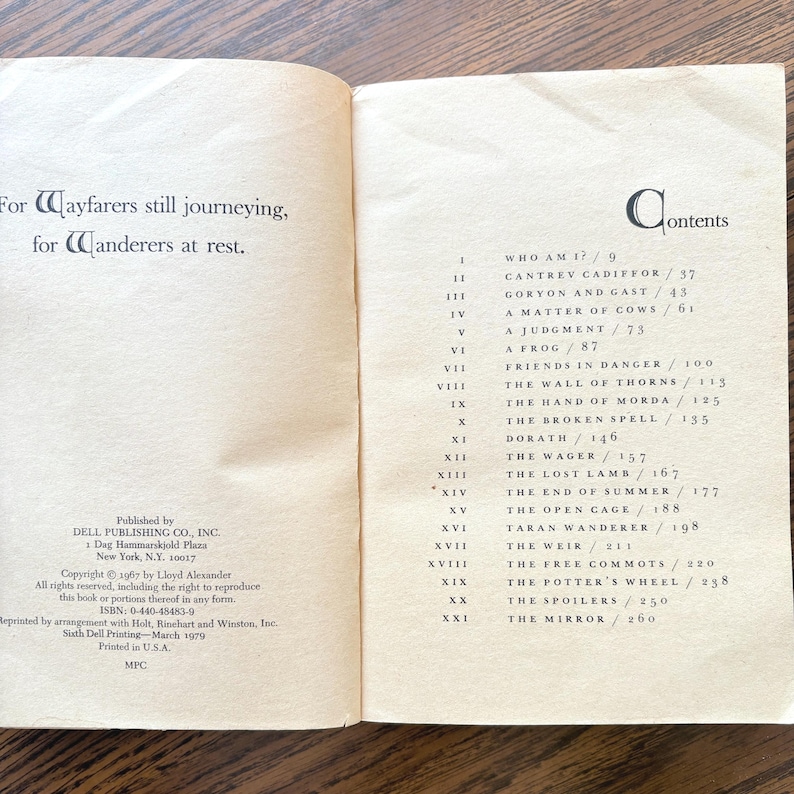 For Wayfarers still journeying,
for Wanderers at rest.
Published by
DELL PUBLISHING CO., INC.
1 Dag Hammarskjold Plaza
New York, N.Y. 10017
Copyright © 1967 by Lloyd Alexander
All rights reserved, including the right to reproduce
this book or portions thereof in any form.
ISBN: 0-440-48483-9
Reprinted by arrangement with Holt, Rinehart and Winston, Inc.
Sixth Dell Printing—March 1979
Printed in U.S.A.
MPC
Contents
I WHO AM I? / 9
II CANTREV CADIFFOR / 37
III GORYON AND GAST / 43
IV A MATTER OF COWS / 61
V A JUDGMENT / 73
VI A FROG / 87
VII FRIENDS IN DANGER / 100
VIII THE WALL OF THORNS / 113
IX THE HAND OF MORDA / 125
X THE BROKEN SPELL / 135
XI DORATH / 146
XII THE WAGER / 157
XIII THE LOST LAMB / 167
XIV THE END OF SUMMER / 177
XV THE OPEN CAGE / 188
XVI TARAN WANDERER / 198
XVII THE WEIR / 211
XVIII THE FREE COMMOTS / 220
XIX THE POTTER'S WHEEL / 238
XX THE SPOILERS / 250
XXI THE MIRROR / 260